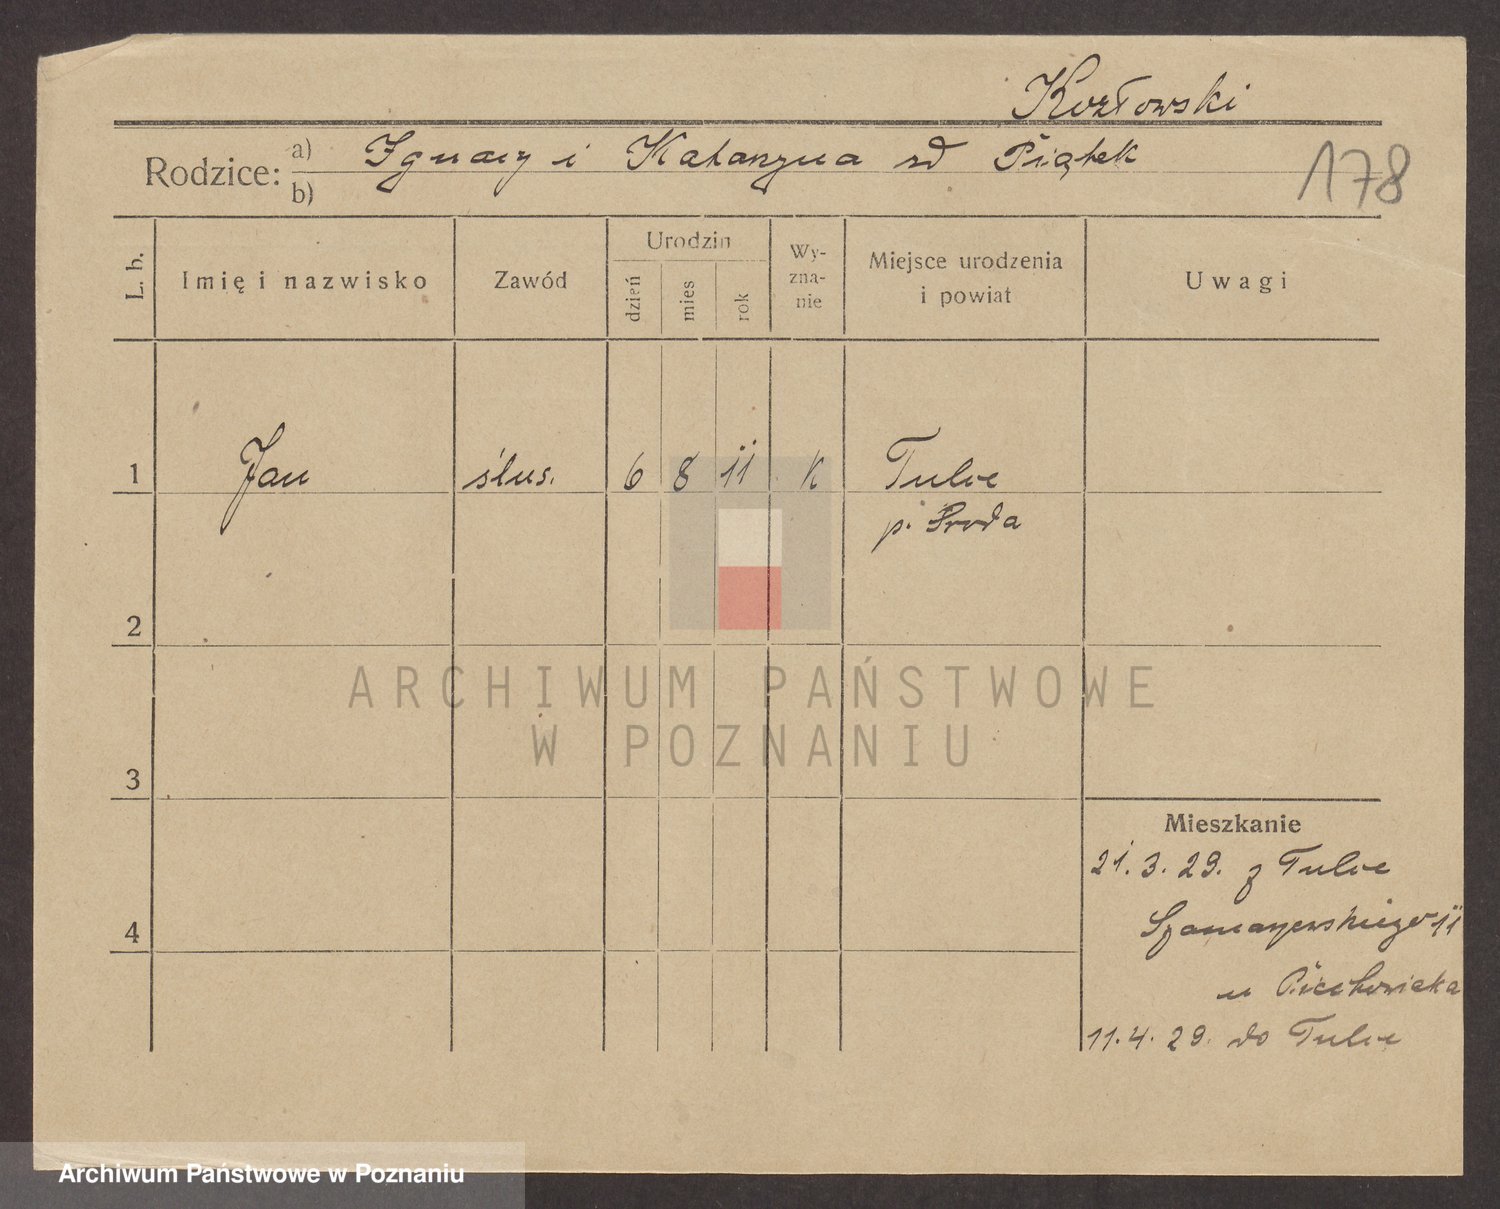 Kozłowski
Rodzice: a) Ignacy i Katarzyna zd Piątek
b)
178
L. b. Imię i nazwisko Zawód Urodzin dzień mies rok Wy-zna-nie Miejsce urodzenia i powiat Uwagi
1 Jan ślus. 6 8 11 K Tulce
p. Środa
2
ARCHIWUM PAŃSTWOWE
W POZNANIU
3
Mieszkanie
21.3.29. z Tulce
4
Szamarzewskiego 11
u Piechowiaka
11.4.29. do Tulce
Archiwum Państwowe w Poznaniu